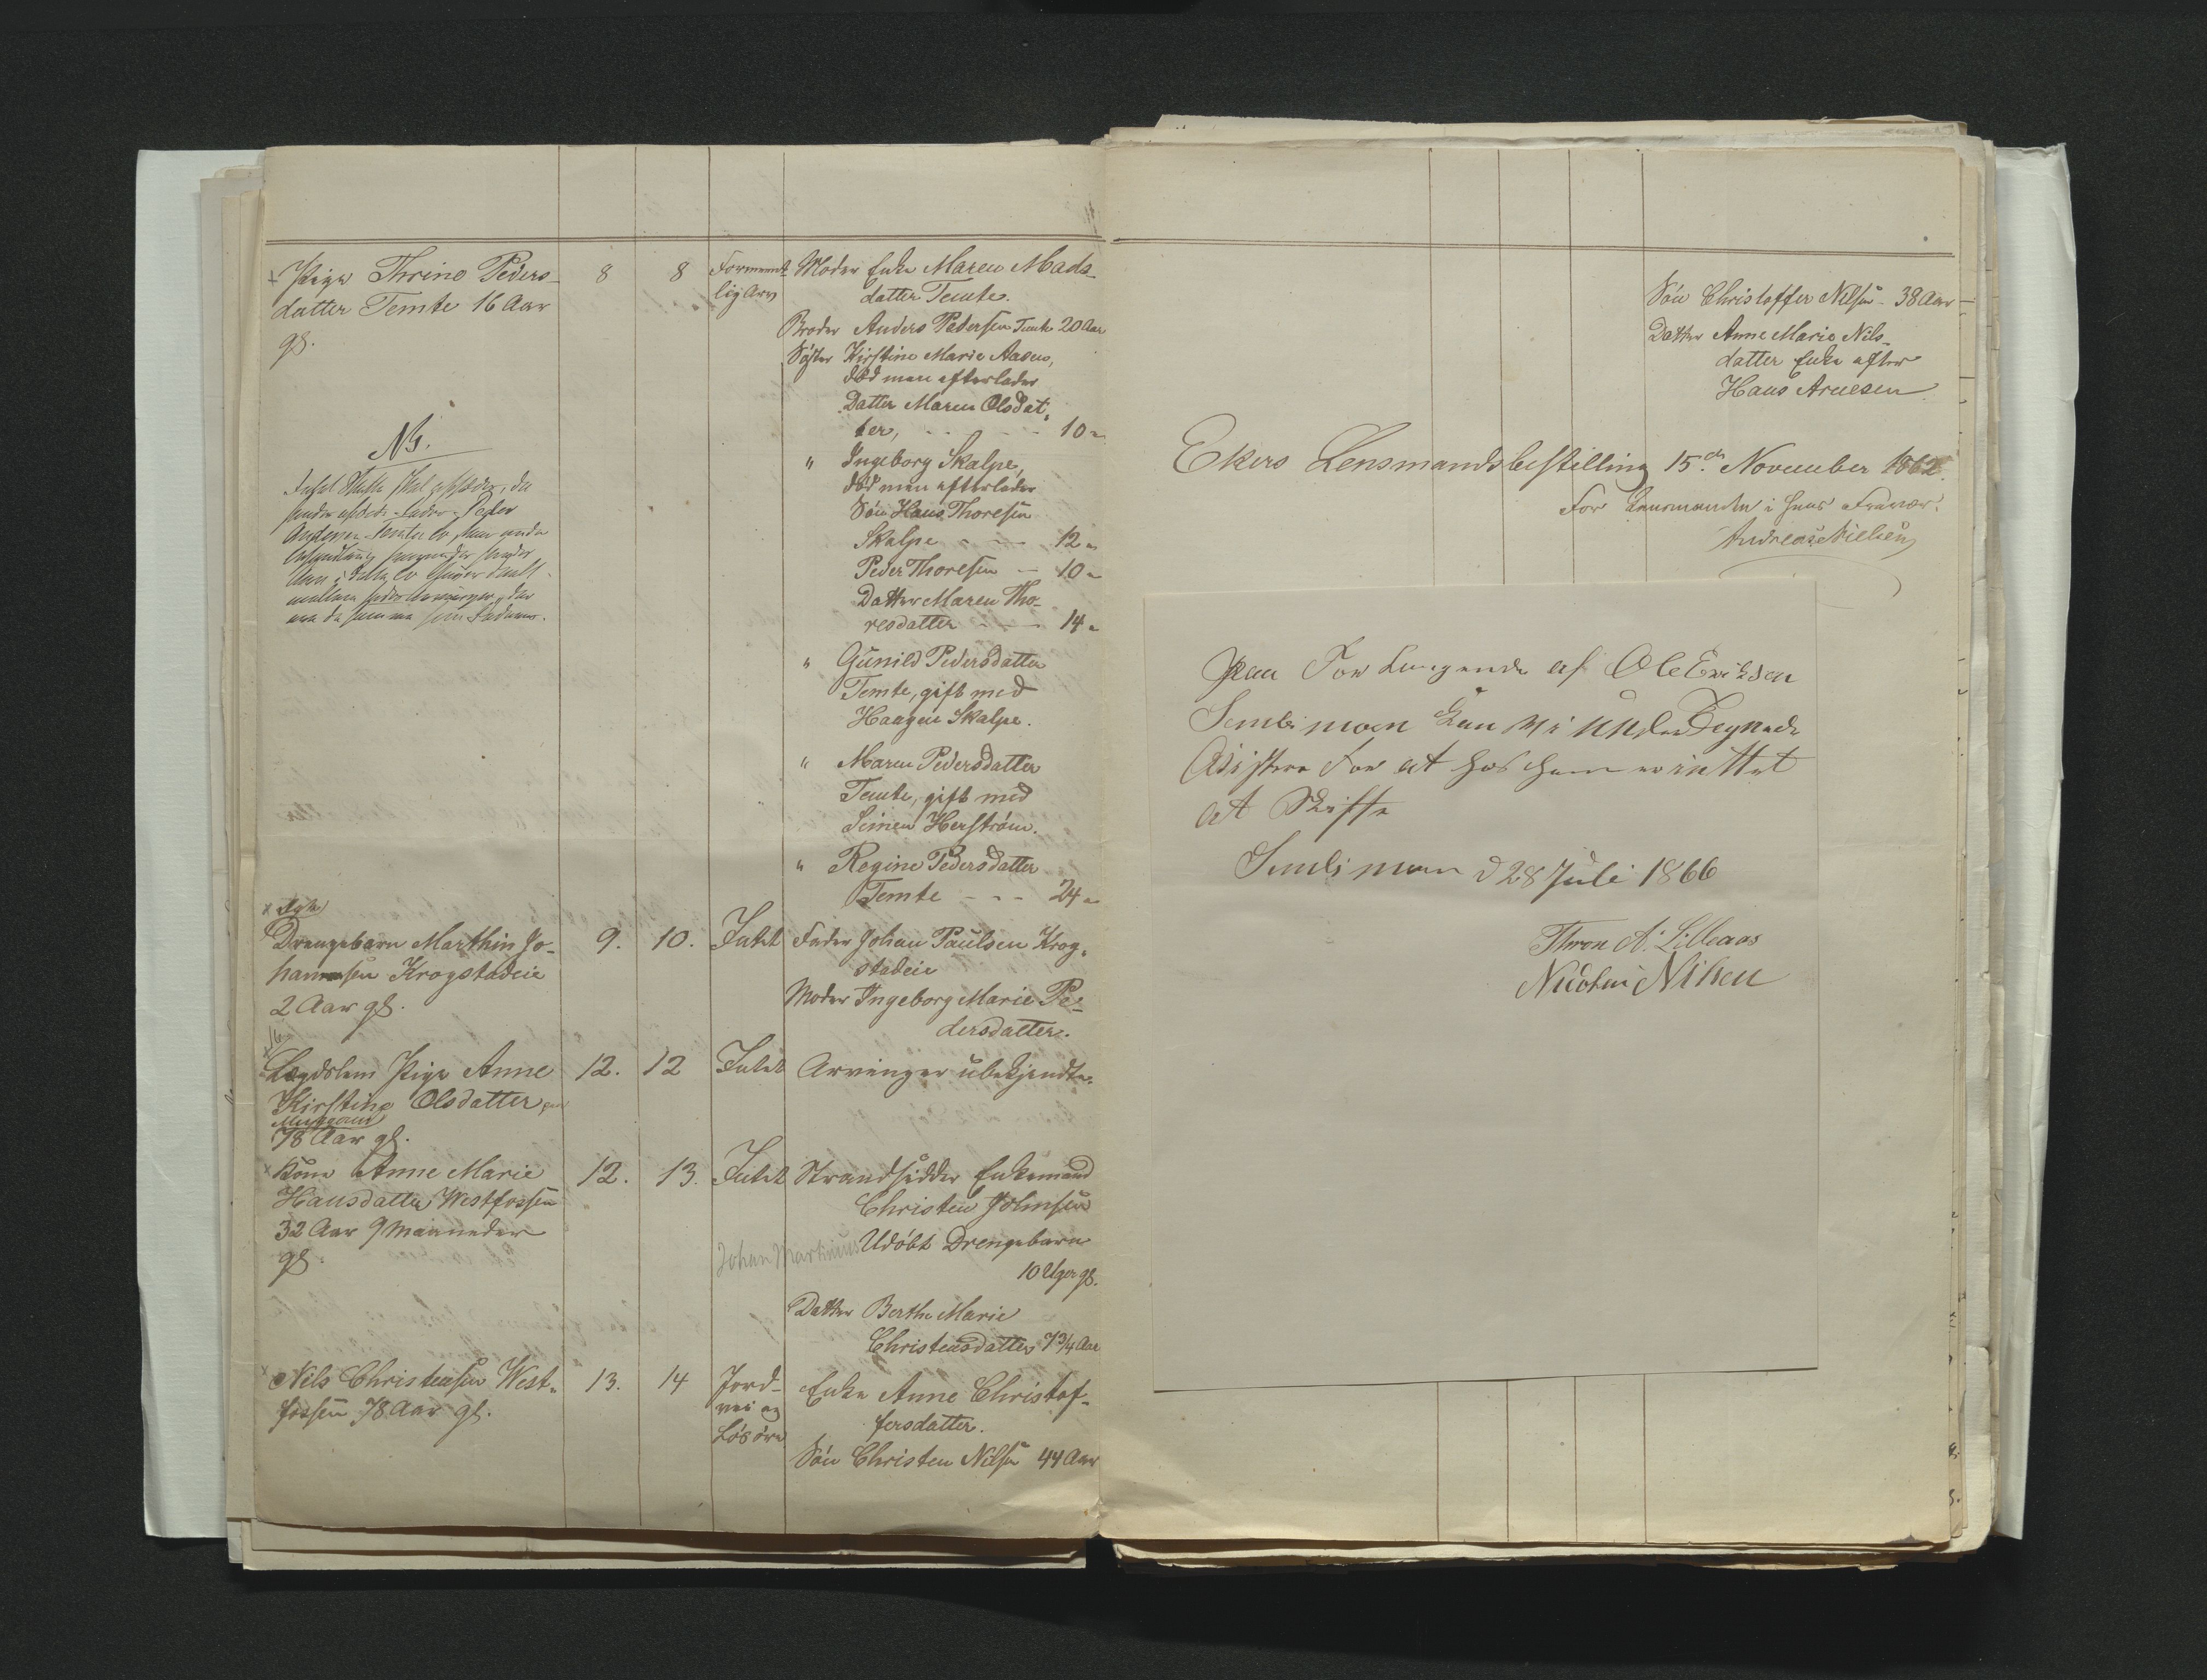 Pige Thrine Peders-
datter Temte 16 Aar
gl.
8
8
Forment-
lig Arv
Moder Enke Maren Mads-
datter Temte.
Broder Anders Pedersen Temte 20 Aar
Søster Kirstine Marie Aasen,
død men efterlader
Datter Maren Olsdat-
ter, - - - 10 "
" Ingeborg Skalpe,
død men efterlader
Søn Hans Thoresen
Skalpe - - - 12 "
Peder Thoresen - 10 "
Datter Maren Tho-
resdatter - - - 14 "
" Gunild Pedersdatter
Temte, gift med
Haagen Skalpe.
" Maren Pedersdatter
Temte, gift med
Simen Herstrøm.
" Regine Pedersdatter
Temte - - - 24 "
NB.
Peder
Drengebarn Marthin Jo-
hannesen Krogstadeie
2 Aar gl.
9.
10.
Intet
Fader Johan Paulsen Krog-
stadeie
Moder Ingeborg Marie Pe-
dersdatter.
Lægdslem Pige Anne
Kirstine Olsdatter
78 Aar gl.
12.
12
Intet
Arvinger ubekjendte.
Kone Anne Marie
Hansdatter Westfossen
32 Aar 9 Maaneder
gl.
12.
13.
Intet
Strandsidder Enkemand
Christen Johnsen
Johan Martinius Udøbt Drengebarn
10 Uger gl.
Datter Berthe Marie
Christensdatter 7 3/4 Aar
Nils Christensen West-
fossen 78 Aar gl.
13.
14
Jord-
vei og
Løsøre
Enke Anne Christof-
fersdatter.
Søn Christen Nilsen 44 Aar
Søn Christoffer Nilsen - 38 Aar
Datter Anne Marie Nils-
datter Enke efter
Hans Arnesen
Ekers Lensmandsbestilling 15.de November 1862.
For Lensmanden i hans Fravær.
Andreas Nielsen
Paa Forlangende af Ole Eriksen
Sembimoen kan vi underTegnede
Atistere For at hos ham er inttet
at Skifte
Sembimoen d 28 Juli 1866
Thron A. Lilleaas
Nicolai Nilsen